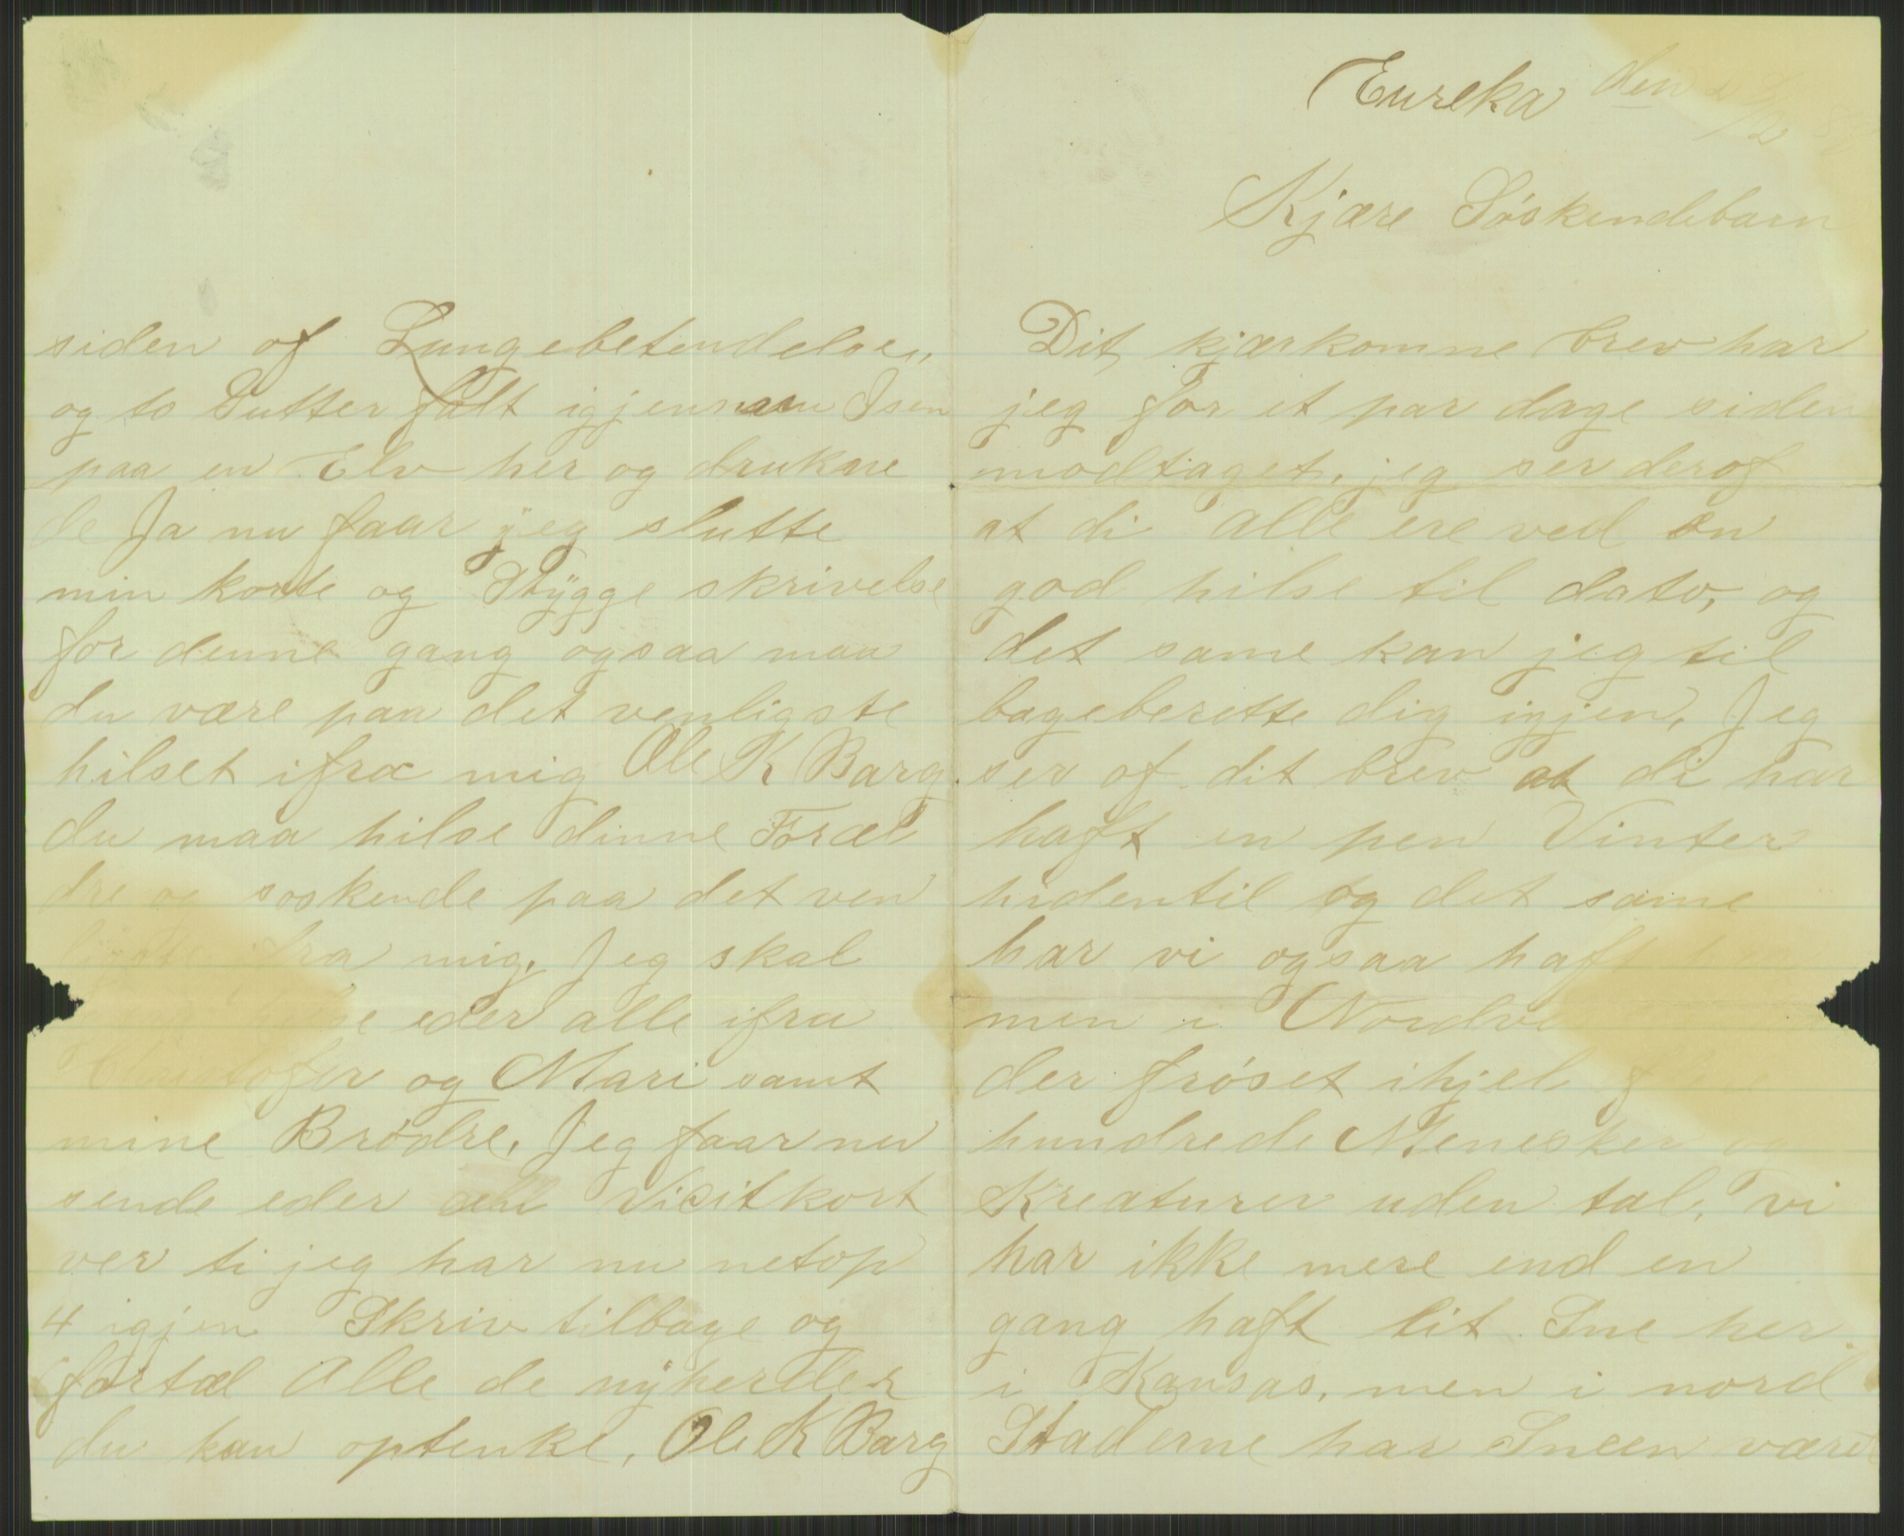 Eureka den
Kjære Søskendebarn
Dit kjærkomne brev har
jeg for et par dage siden
modtaget, jeg ser derof
at di alle ere ved en
god hilse til dato, og
det same kan jeg til
bageberette dig igjen, Jeg
ser of dit brev at di har
haft en pen Vinter
hidentil og det same
har vi ogsaa haft
men i
der frøset ihjel
hundrede Menesker og
Kreaturer uden tal, vi
har ikke mere end en
gang haft lit Sne her
i Kansas, men i nord
Staderne har Sneen været
siden of Lungebetendelse,
og to Gutter falt igjennem Isen
paa en Elv her og drukne
de Ja nu faar jeg slutte
min korte og Stygge skrivelse
for denne gang ogsaa maa
du være paa det venligste
hilset ifra mig Ole K Barg
du maa hilse dinne Foræl
dre og søskende paa det ven
ligste ifra mig, Jeg skal
eder alle ifra
Christofer og Mari samt
mine Brødre, Jeg faar nu
sende eder Visitkort
ver ti jeg har nu netop
4 igjen Skriv tilbage og
fortæl Alle de nyheder
du kan optenke, Ole K Barg